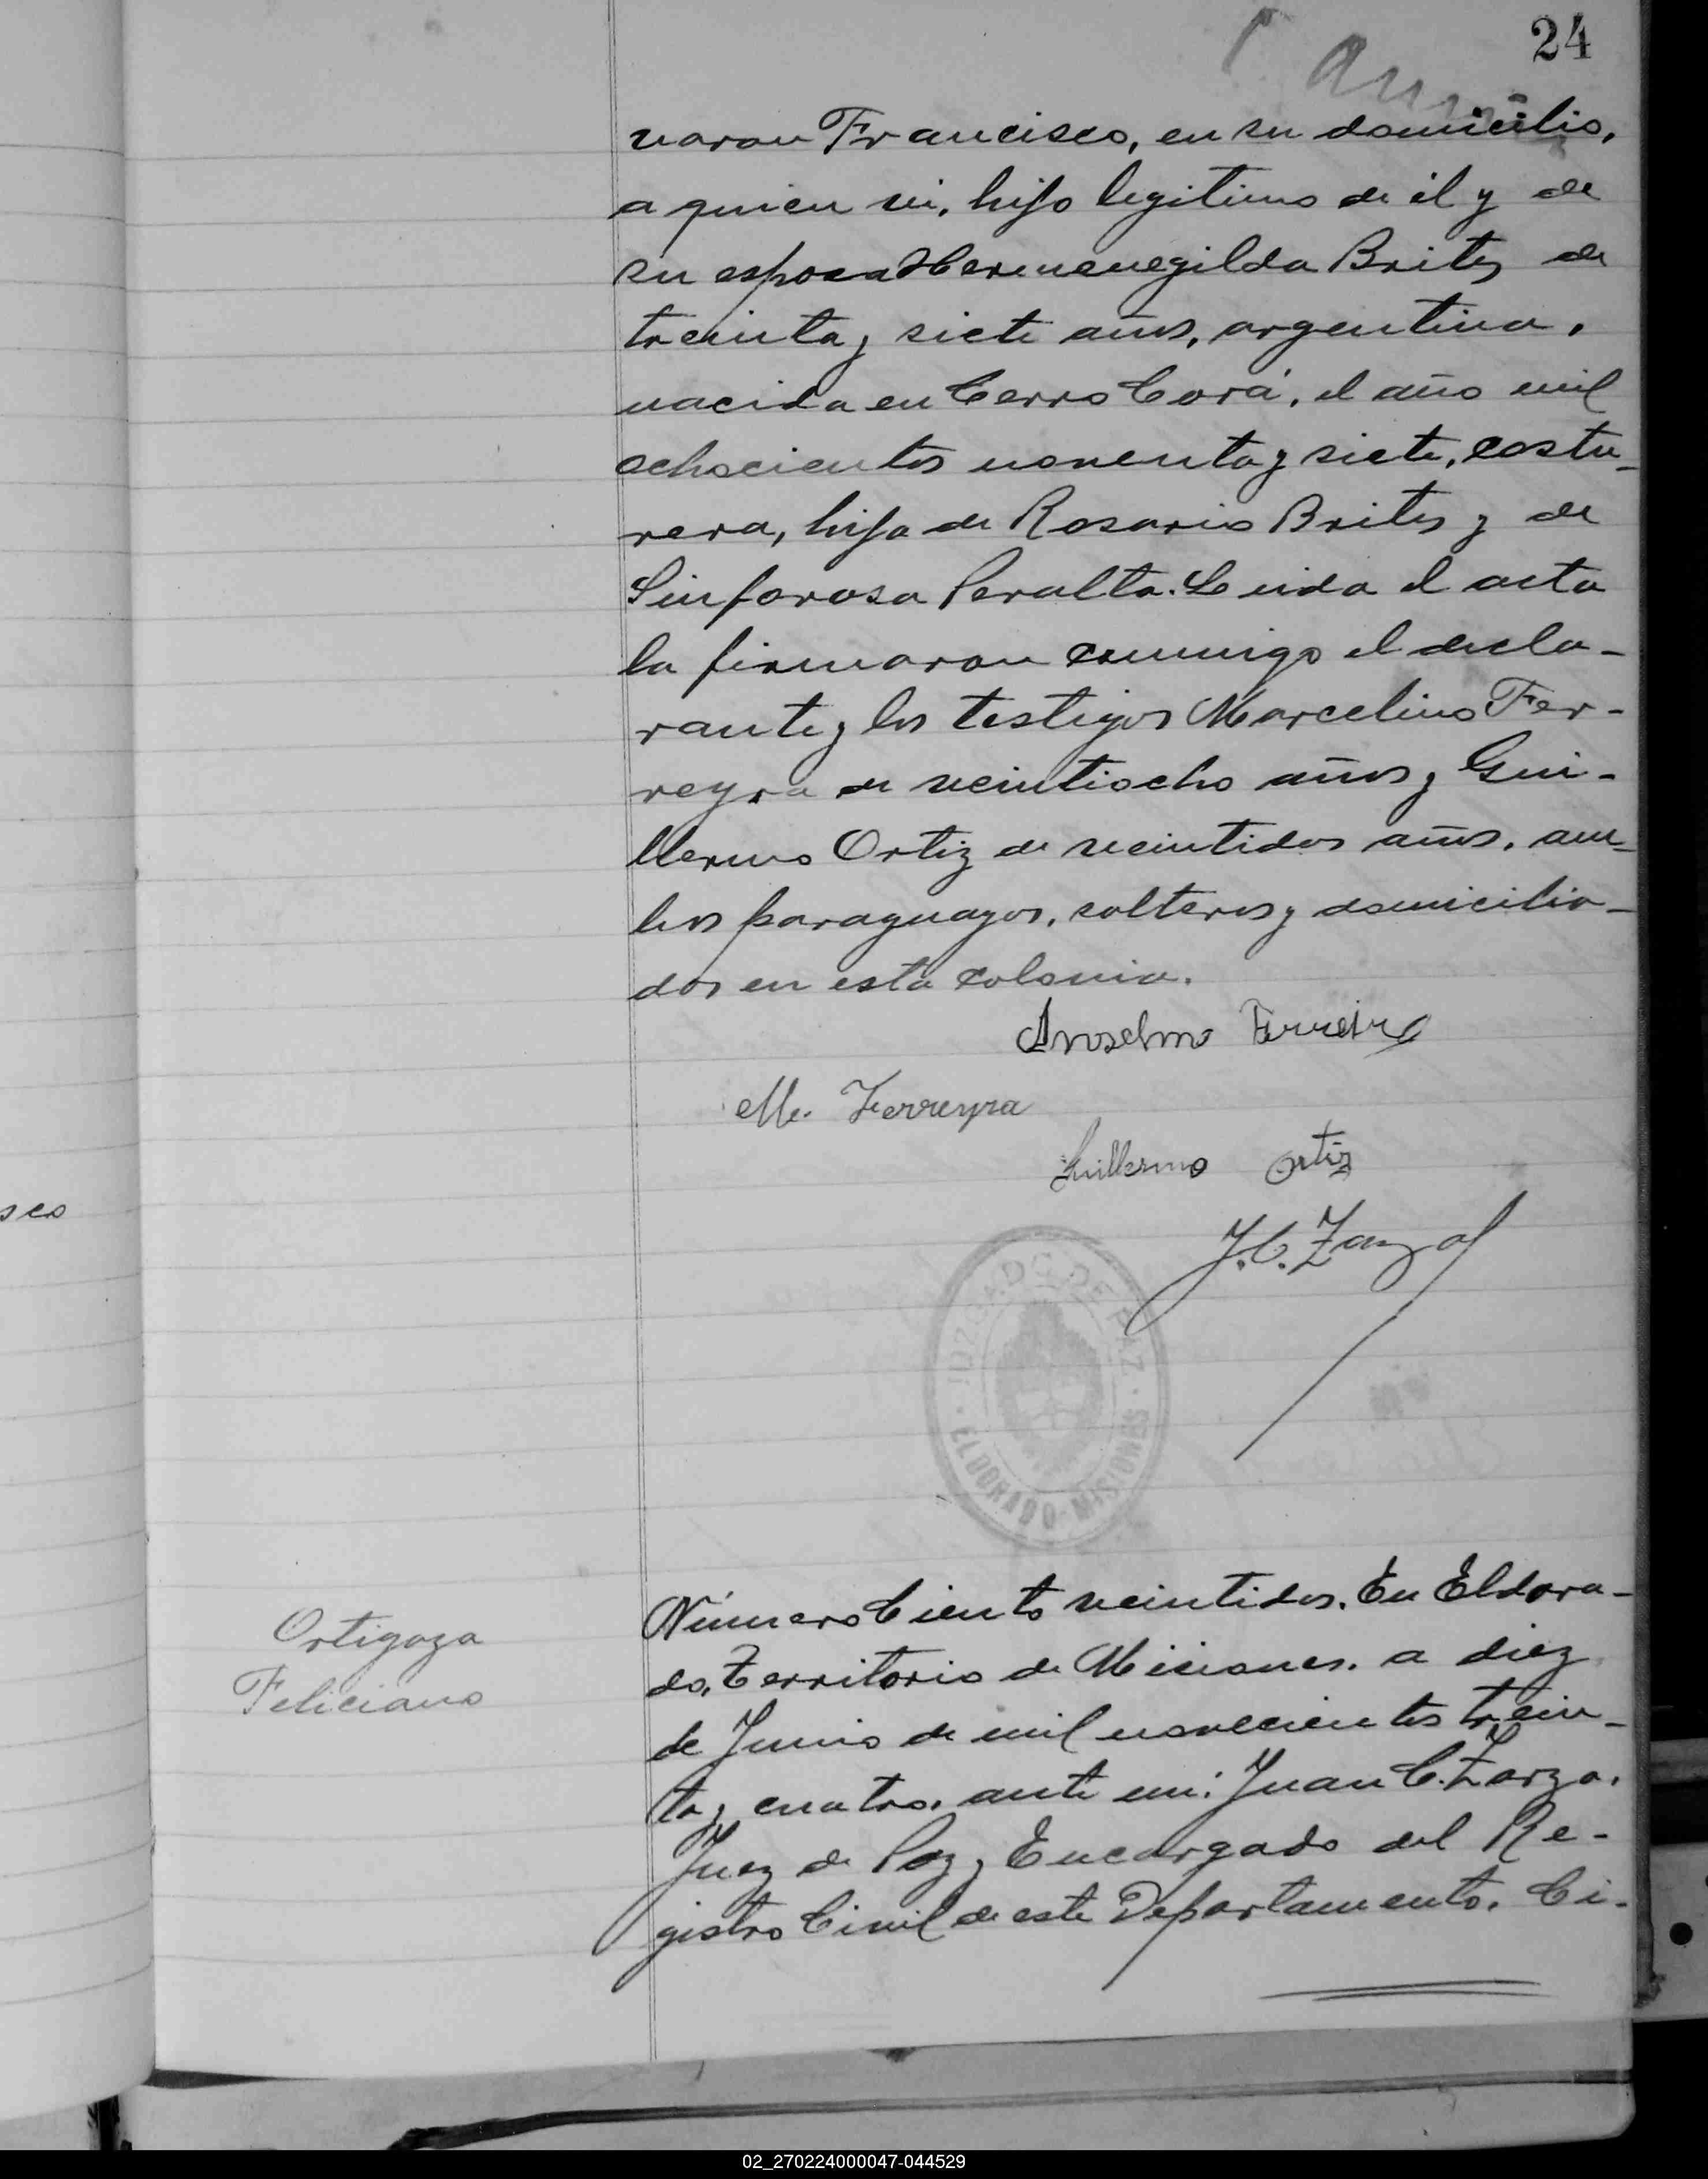 24
varon Francisco, en su domicilio,
a quien vi, hijo legitimo de él y de
su esposa Hermenegilda Brites de
treinta y siete años, argentina,
nacida en Cerro Corá, el año mil
ochocientos noventa y siete, costu-
rera, hija de Rosario Brites y de
Sinforosa Peralta. Leida el acta
la firmaron conmigo el decla-
rante y los testigos Marcelino Fer-
reyra de veintiocho años y Gui-
llermo Ortiz de veintidos años, am-
bos paraguayos, solteros y domicilia-
dos en esta colonia.
Anselmo Ferreira
M. Ferreyra
Guillermo Ortiz
J. C. Zarza
JUZGADO DE PAZ
ELDORADO - MISIONES
sco
Ortigoza
Feliciano
Número Ciento veintidos. En Eldora-
do, Territorio de Misiones, a diez
de Junio de mil novecientos trein-
ta y cuatro, ante mi: Juan C. Zarza,
Juez de Paz y Encargado del Re-
gistro Civil de este Departamento. Ci-
02_270224000047-044529